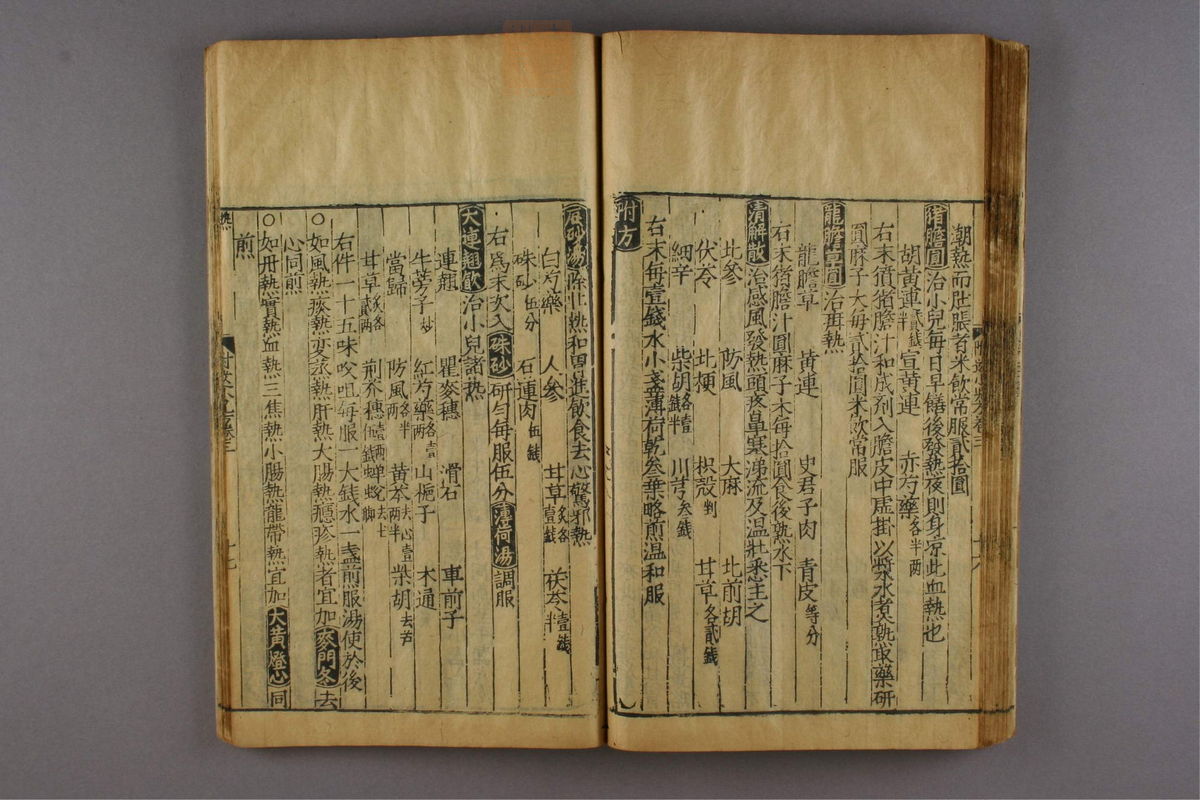 潮熱而肚脹者米飲常服貳拾圓
猪膽圓 治小兒每日早饍後發熱夜則身凉此血熱也
胡黃連貳錢半 宣黃連 赤芍藥各半两
右末獖猪膽汁和成劑入膽皮中虛掛以漿水煮熟取藥研
圓麻子大每貳拾圓米飲常服
龍膽草圓 治疳熱
龍膽草 黃連 史君子肉 青皮等分
右末猪膽汁圓麻子大每拾圓食後熟水下
清解散 治感風發熱頭疼鼻塞涕流及温壯悉主之
北參 防風 大麻 北前胡
伏苓 北梗 枳殻 甘草各貳錢
細辛 柴胡各壹錢半 川芎叁錢
右末每壹錢水小盞薄荷乾叁葉略煎温和服
附方
辰砂湯 除壮熱和胃進飲食去心驚邪熱
白芍藥 人參 甘草炙各壹錢 茯苓壹錢半
硃砂伍分 石連肉伍錢
右爲末次入硃砂研勻每服伍分薄荷湯調服
大連翹飲 治小兒諸熱
連翹 瞿麥穗 滑石 車前子
牛蒡子炒 紅芍藥各壹两 山梔子 木通
當歸 防風各半两 黃芩去心壹两半 柴胡去芦
甘草炙各貳两 荆芥穗 蟬蛻去土脚
右件一十五味㕮咀每服一大錢水一盞煎服湯使於後
○如風熱痰熱変蒸熱肝熱大腸熱癮疹熱者宜加麥門冬去
心同煎
○如丹熱實熱血熱三焦熱小腸熱龍帶熱宜加大黃燈心同
煎